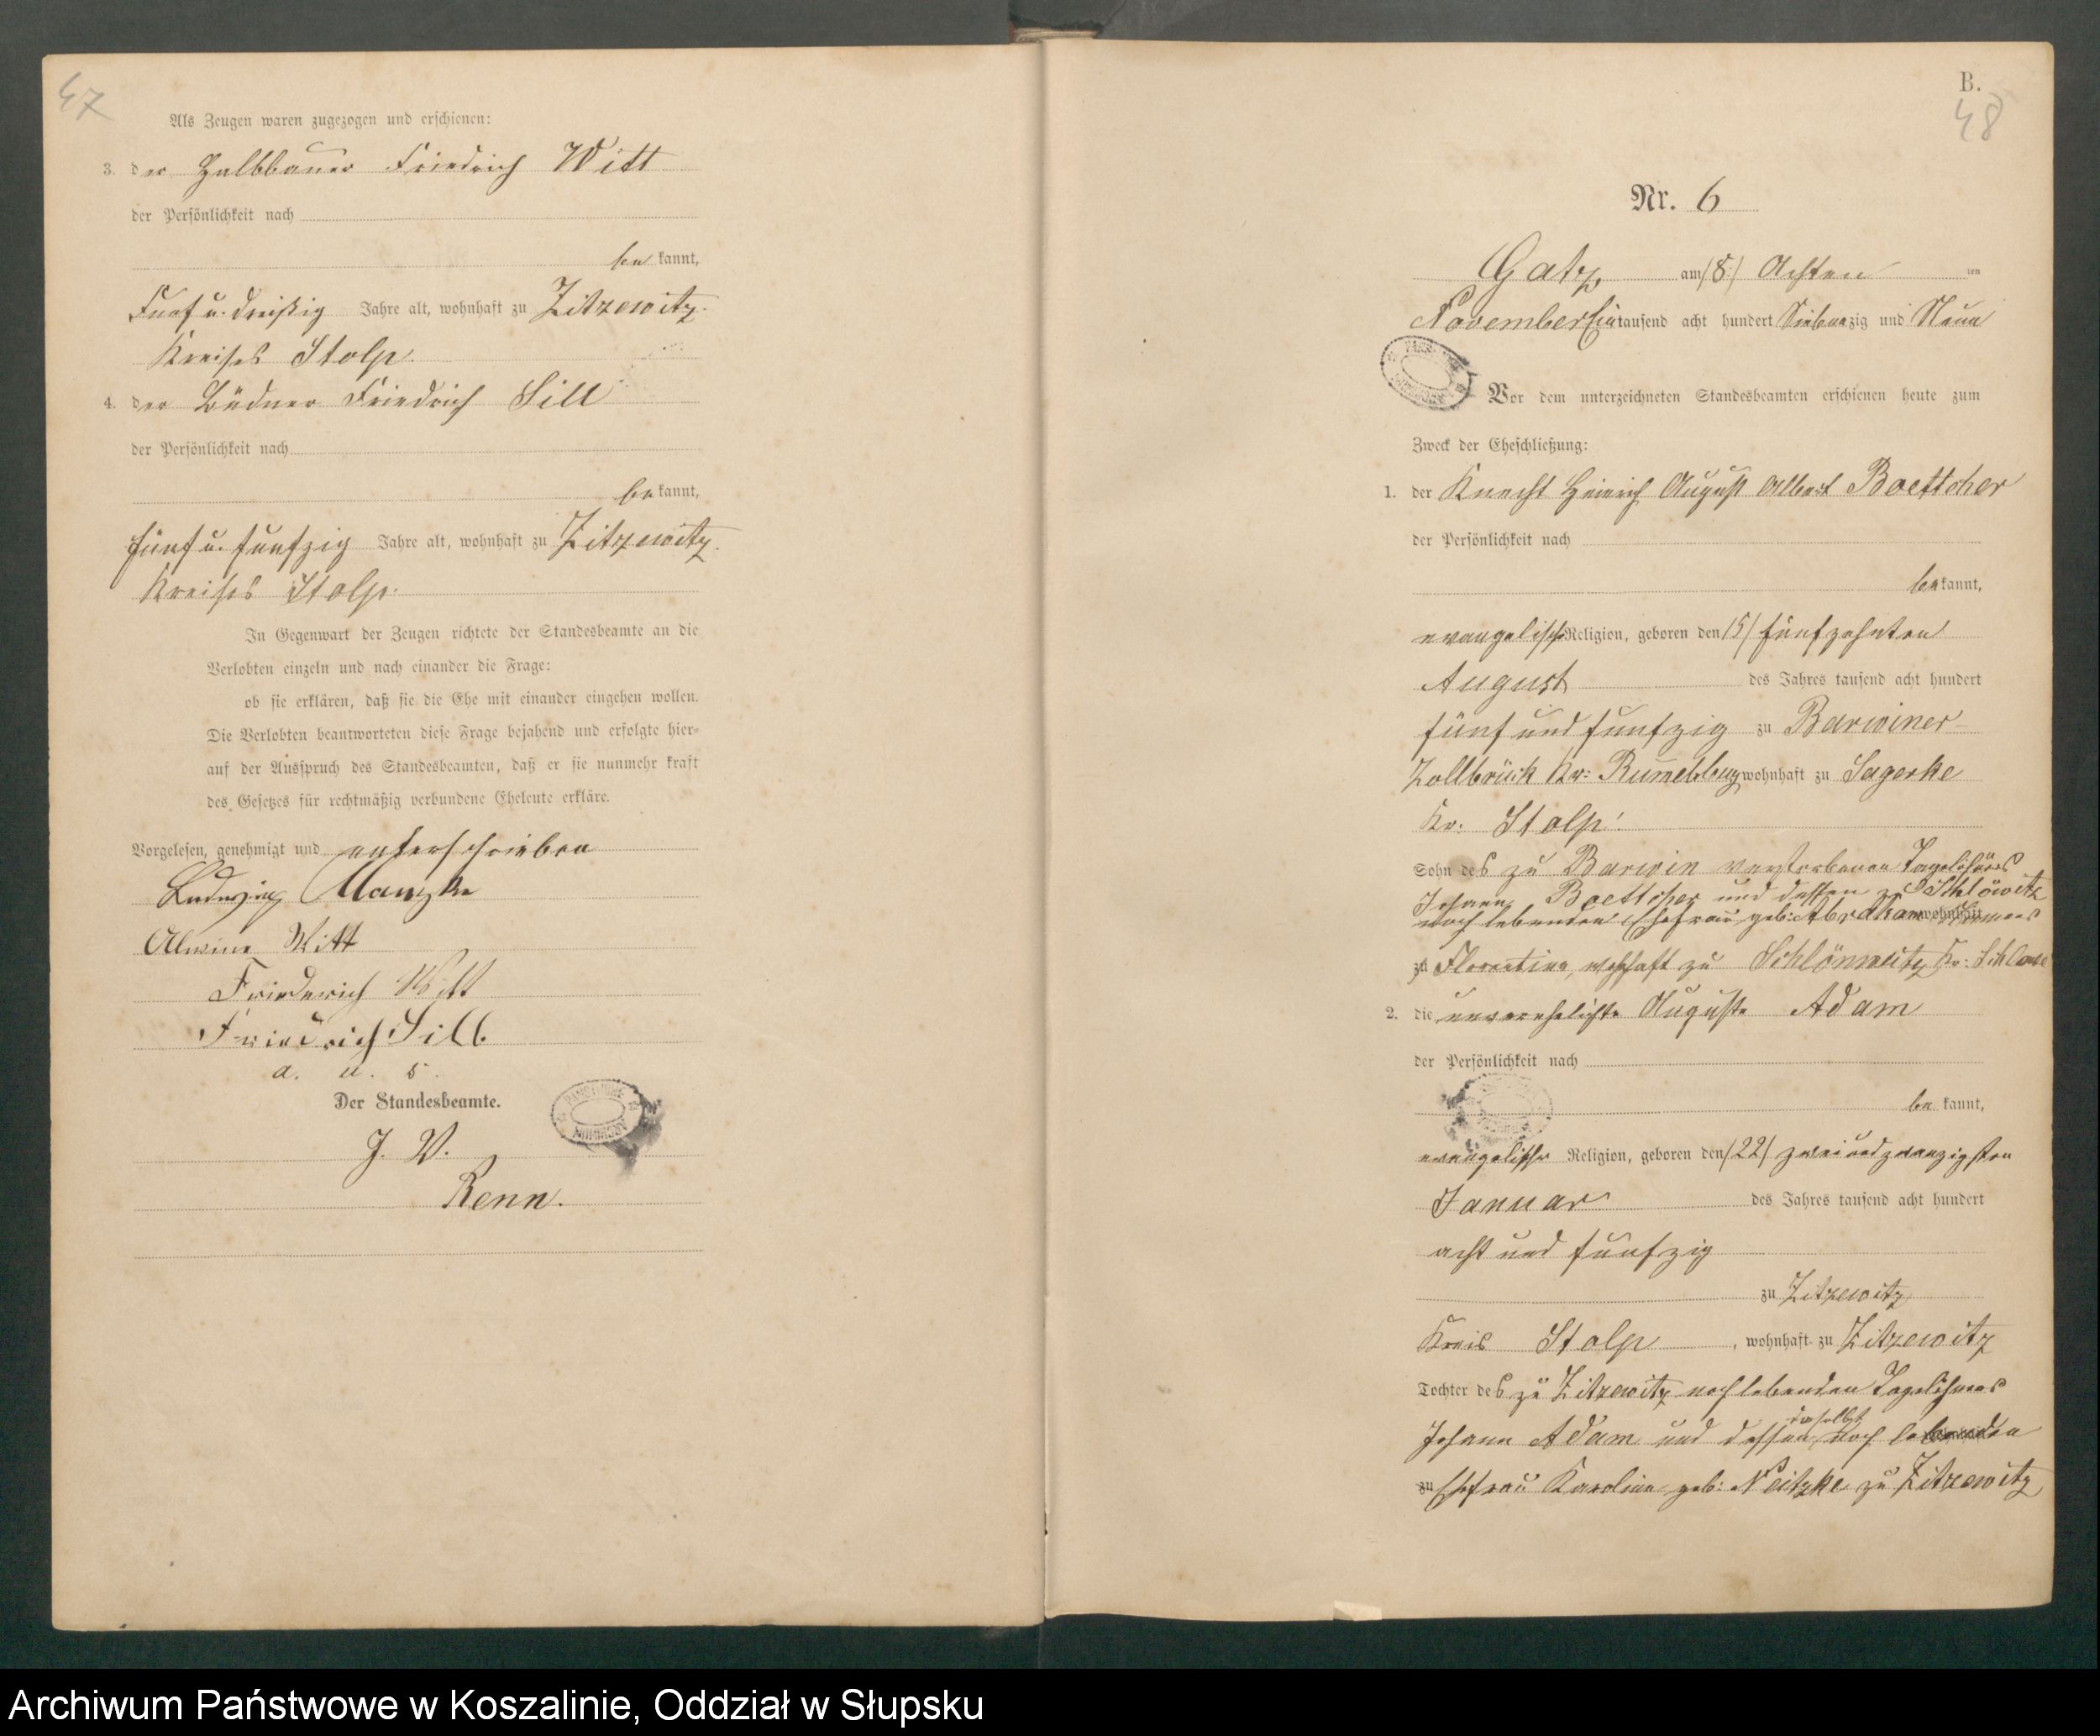 47
Als Zeugen waren zugezogen und erschienen:
3. der Halbbauer Friedrich Witt
der Persönlichkeit nach
be kannt,
Fünf u. dreißig Jahre alt, wohnhaft zu Zitzewitz.
Kreises Stolp.
4. der Büdner Friedrich Sill
der Persönlichkeit nach
be kannt,
fünf u. funfzig Jahre alt, wohnhaft zu Zitzewitz.
Kreises Stolp.
In Gegenwart der Zeugen richtete der Standesbeamte an die
Verlobten einzeln und nach einander die Frage:
ob sie erklären, daß sie die Ehe mit einander eingehen wollen.
Die Verlobten beantworteten diese Frage bejahend und erfolgte hier-
auf der Ausspruch des Standesbeamten, daß er sie nunmehr kraft
des Gesetzes für rechtmäßig verbundene Eheleute erkläre.
Vorgelesen, genehmigt und unterschrieben
Ludwig Manzke
Alwine Witt
Friederich Witt
Friedrich Sill
a. u. s.
Der Standesbeamte.
J. V.
Renn.
B.
48
Nr. 6
Gatz, am /8./ Achten ten
November Ein tausend acht hundert Siebenzig und Neun
Vor dem unterzeichneten Standesbeamten erschienen heute zum
Zweck der Eheschließung:
1. der Knecht Heinrich August Albert Boettcher
der Persönlichkeit nach
be kannt,
evangelischer Religion, geboren den /15/ fünfzehnten
August des Jahres tausend acht hundert
fünf und funfzig zu Barwiner-
Zollbrück Kr: Rummelsburg wohnhaft zu Sagerke
Kr. Stolp.
Sohn des zu Barwin verstorbenen Tagelöhners
Johann Boettcher und dessen zu Schlöwitz
noch lebenden Ehefrau geb: Abraham wohnhaft
zu Florentine, wohnhaft zu Schlönwitz Kr: Schlawe
2. die unverehelichte Auguste Adam
der Persönlichkeit nach
be kannt,
evangelischer Religion, geboren den /22/ zwei und zwanzigsten
Januar des Jahres tausend acht hundert
acht und funfzig
zu Zitzewitz
Kreis Stolp, wohnhaft zu Zitzewitz
Tochter des zu Zitzewitz noch lebenden Tagelöhners
daselbst
Johann Adam und dessen noch lebenden
zu Ehefrau Karoline geb: Neitzke zu Zitzewitz
Archiwum Państwowe w Koszalinie, Oddział w Słupsku